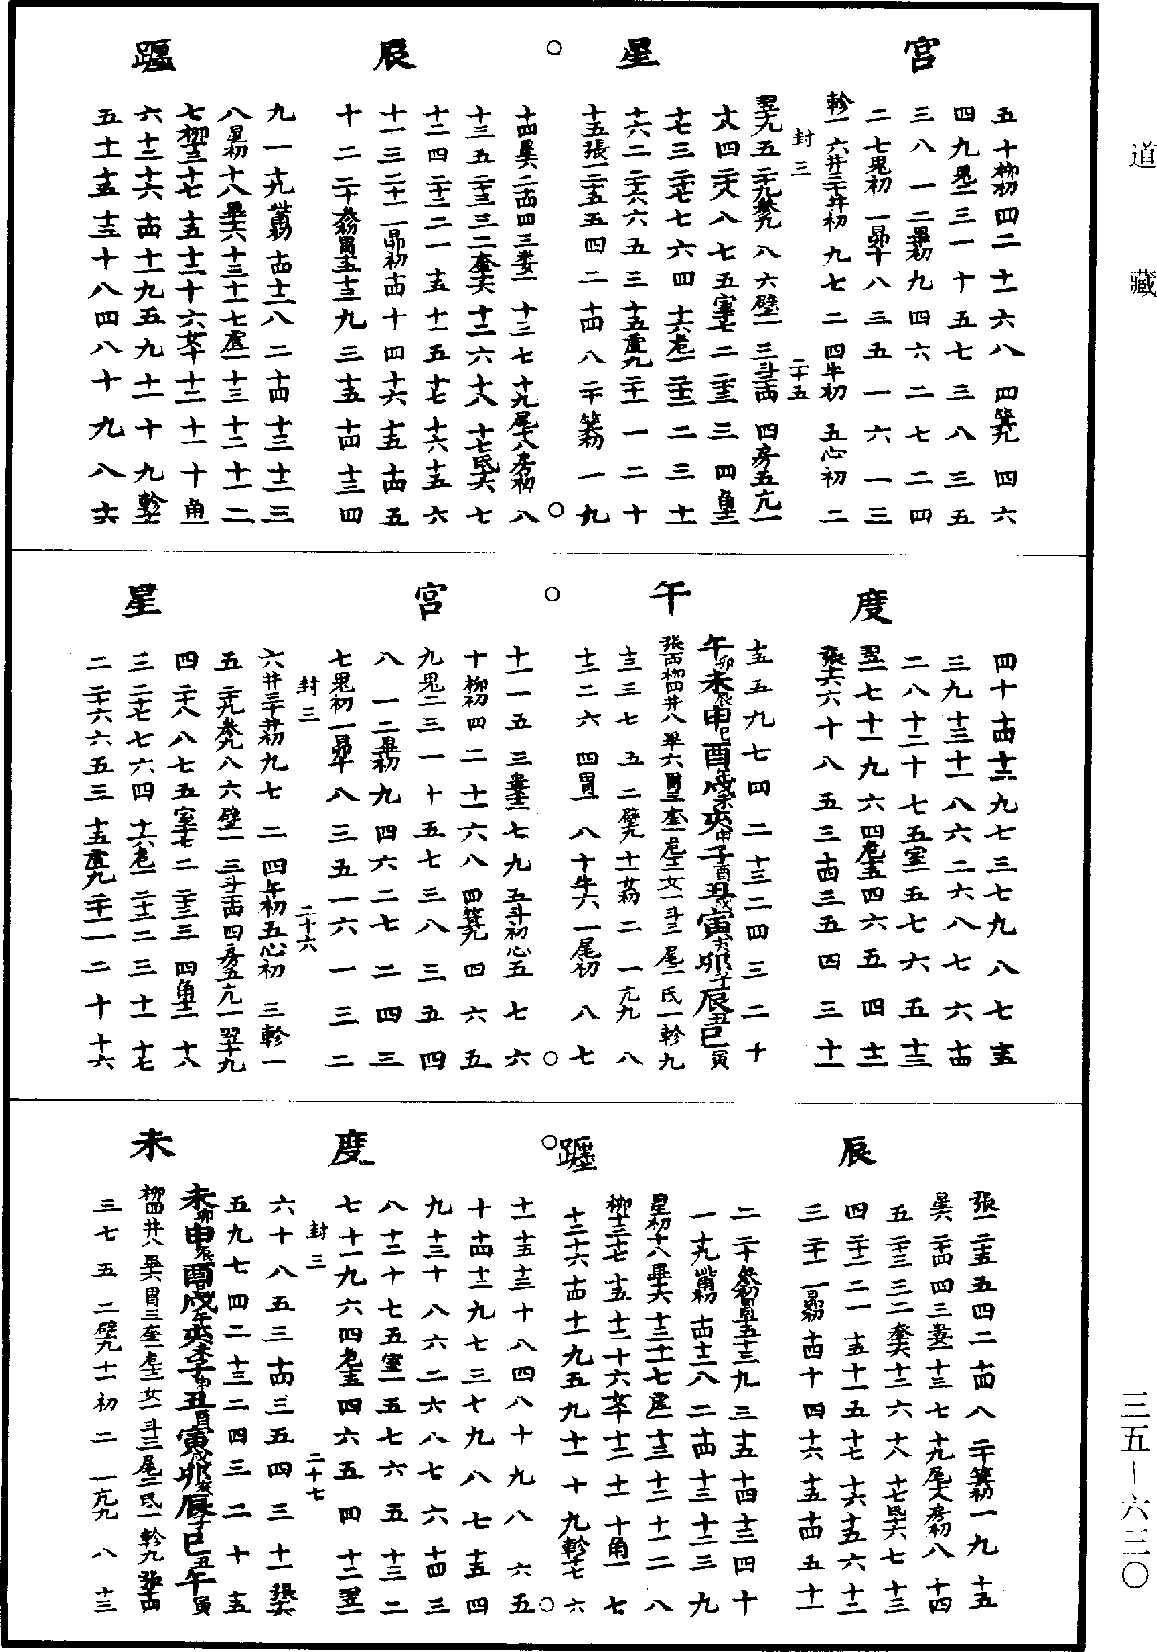 道藏
三五—六三〇
宫　星　○　辰　躔
五　十　柳初　四　二　十一　六　八　四　箕九　四　六
四　九　鬼二　三　一　十　五　七　三　八　三　五
三　八　一　二　畢初　九　四　六　二　七　二　四
二　七　鬼初　一　昴十　八　三　五　一　六　一　三
軫一　六　井三十　井初　九　七　二　四　牛初　五　心初　二
封三　二十五
翌九　五　二九　参九　八　六　壁一　三　斗二四　四　房五　亢一
十八　四　二八　八　七　五　室七　二　二三　三　四　角十二
十七　三　二七　七　六　四　十六　危一　二二　二　三　十一
十六　二　二六　六　五　三　十五　虚九　二一　一　二　十
十五　張一　二五　五　四　二　十四　八　二十　箕初　一　九
十四　二四　四　三　婁一　十三　七　十九　尾十八　房初　八
十三　五　二三　三　二　奎六　十二　六　十八　十七　氐十六　七
十二　四　二二　二　一　十五　十一　五　十七　十六　十五　六
十一　三　二一　一　昴初　十四　十　四　十六　十五　十四　五
十　二　二十　参初　胃十五　十三　九　三　十五　十四　十三　四
九　一　十九　觜初　十四　十二　八　二　十四　十三　十二　三
八　星初　十八　畢十六　十三　十一　七　虚一　十三　十二　十一　二
七　柳十三　十七　十五　十二　十　六　女十　十二　十一　十　角一
六　十二　十六　十四　十一　九　五　九　十一　十　九　軫十七
五　十一　十五　十三　十　八　四　八　十　九　八　十六
度　午　○　宫　星
四　十　十四　十二　九　七　三　七　九　八　七　十五
三　九　十三　十一　八　六　二　六　八　七　六　十四
二　八　十二　十　七　五　室一　五　七　六　五　十三
翌一　七　十一　九　六　四　危十五　四　六　五　四　十二
張十六　六　十　八　五　三　十四　三　五　四　三　十一
十五　五　九　七　四　二　十三　二　四　三　二　十
午卯未辰申巳酉午戌未亥申子酉丑戌寅亥卯子辰丑巳寅
張十四　柳四　井八　畢六　胃三　奎一　危十二　女一　斗三　尾二　氐一　軫九
十三　三　七　五　二　壁九　十一　女初　二　一　亢九　八
十二　二　六　四　胃一　八　十　牛六　一　尾初　八　七
十一　一　五　三　婁十二　七　九　五　斗初　心五　七　六
十　柳初　四　二　十一　六　八　四　箕九　四　六　五
九　鬼二　三　一　十　五　七　三　八　三　五　四
八　一　二　畢初　九　四　六　二　七　二　四　三
七　鬼初　一　昴十　八　三　五　一　六　一　三　二
封三　二十六
六　井三十　井初　九　七　二　四　牛初　五　心初　三　軫一
五　二九　参九　八　六　壁一　三　斗二四　四　房五　亢一　翌十九
四　二八　八　七　五　室十七　二　二三　三　四　角十二　十八
三　二七　七　六　四　十六　危一　二二　二　三　十一　十七
二　二六　六　五　三　十五　虚九　二一　一　二　十　十六
辰　躔　○　度　未
張一　二五　五　四　二　十四　八　二十　箕初　一　九　十五
星六　二四　四　三　婁一　十三　七　十九　尾十八　房初　八　十四
五　二三　三　二　奎十六　十二　六　十八　十七　氐十六　七　十三
四　二二　二　一　十五　十一　五　十七　十六　十五　六　十二
三　二一　一　昴初　十四　十　四　十六　十五　十四　五　十一
二　二十　参初　胃十五　十三　九　三　十五　十四　十三　四　十
一　十九　觜初　十四　十二　八　二　十四　十三　十二　三　九
星初　十八　畢十六　十三　十一　七　虚一　十三　十二　十一　二　八
柳十三　十七　十五　十二　十　六　女十　十二　十一　十　角一　七
十二　十六　十四　十一　九　五　九　十一　十　九　軫十七　六
十一　十五　十三　十　八　四　八　十　九　八　六　五
十　十四　十二　九　七　三　七　九　八　七　十五　四
九　十三　十　八　六　二　六　八　七　六　十四　三
八　十二　十　七　五　室一　五　七　六　五　十三　二
七　十一　九　六　四　危十五　四　六　五　四　十二　翌一
封三　二十七
六　十　八　五　三　十四　三　五　四　三　十一　張十六
五　九　七　四　二　十三　二　四　三　二　十　十五
未卯申辰酉巳戌午亥未子申丑酉寅戌卯亥辰子巳丑午寅
柳四　井八　畢六　胃三　奎一　危十二　女一　斗三　尾二　氐一　軫九　張十四
三　七　五　二　壁九　十一　初　二　一　亢九　八　十三